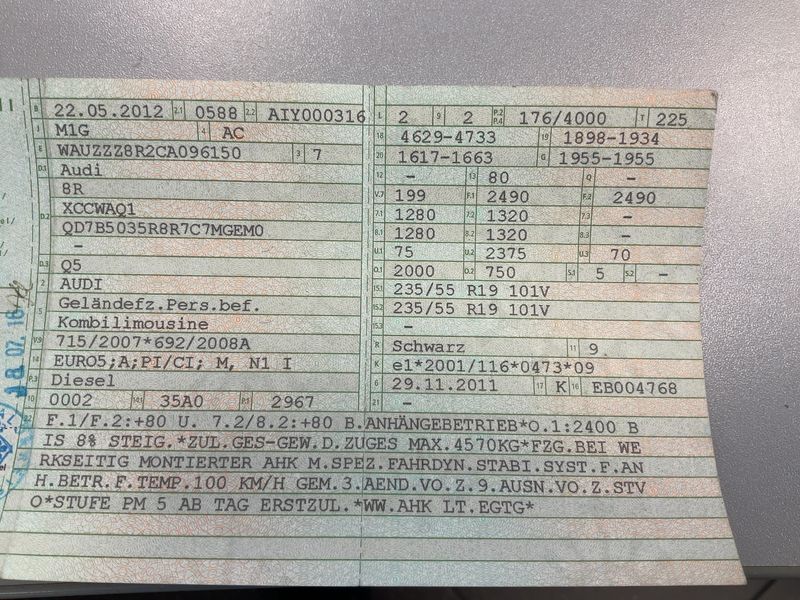 B 22.05.2012 2.1 0588 2.2 AIY000316 L 2 9 2 P.2 P.4 176/4000 T 225
J M1G 4 AC 18 4629-4733 19 1898-1934
E WAUZZZ8R2CA096150 3 7 20 1617-1663 G 1955-1955
D.1 Audi 12 – 13 80 Q –
8R V.7 199 F.1 2490 F.2 2490
D.2 XCCWAQ1 7.1 1280 7.2 1320 7.3 –
QD7B5035R8R7C7MGEM0 8.1 1280 8.2 1320 8.3 –
– U.1 75 U.2 2375 U.3 70
D.3 Q5 O.1 2000 O.2 750 S.1 5 S.2 –
2 AUDI 15.1 235/55 R19 101V
5 Geländefz.Pers.bef. 15.2 235/55 R19 101V
Kombilimousine 15.3 –
V.9 715/2007*692/2008A R Schwarz 11 9
14 EURO5;A;PI/CI; M, N1 I K e1*2001/116*0473*09
P.3 Diesel 6 29.11.2011 17 K 16 EB004768
10 0002 14.1 35A0 P.1 2967 21 –
22 F.1/F.2:+80 U. 7.2/8.2:+80 B.ANHÄNGEBETRIEB*O.1:2400 B
IS 8% STEIG.*ZUL.GES-GEW.D.ZUGES MAX.4570KG*FZG.BEI WE
RKSEITIG MONTIERTER AHK M.SPEZ.FAHRDYN.STABI.SYST.F.AN
H.BETR.F.TEMP.100 KM/H GEM.3.AEND.VO.Z.9.AUSN.VO.Z.STV
O*STUFE PM 5 AB TAG ERSTZUL.*WW.AHK LT.EGTG*